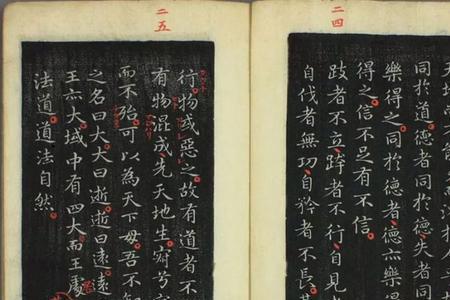 二四
同於道德者同於德失者同
樂得之同於德者德亦樂
得之信不足有不信
跂者不立跨者不行自見
自伐者無功自矜者不長其
二五
行物或惡之故有道者不
有物混成先天地生寂兮
而不殆可以為天下母吾不
之名曰大大曰逝逝曰遠遠
王亦大域中有四大而王處
法道道法自然